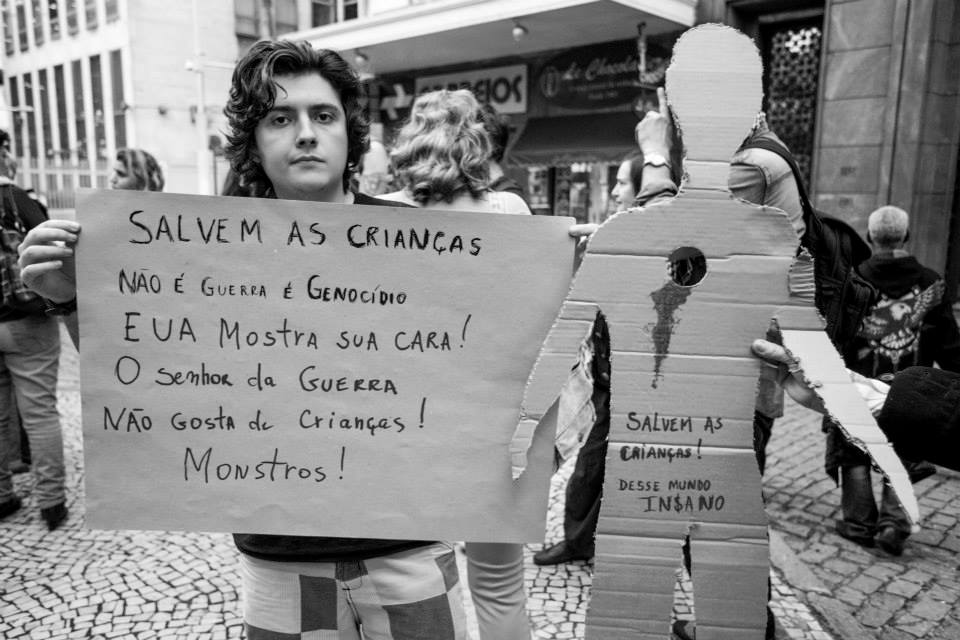 CORREIOS
Le Chocolatier
SALVEM AS CRIANÇAS
NÃO É GUERRA É GENOCÍDIO
EUA MOSTRA SUA CARA!
O Senhor da GUERRA
NÃO GOSTA de Crianças!
Monstros!
SALVEM AS
CRIANÇAS!
DESSE MUNDO
IN$ANO